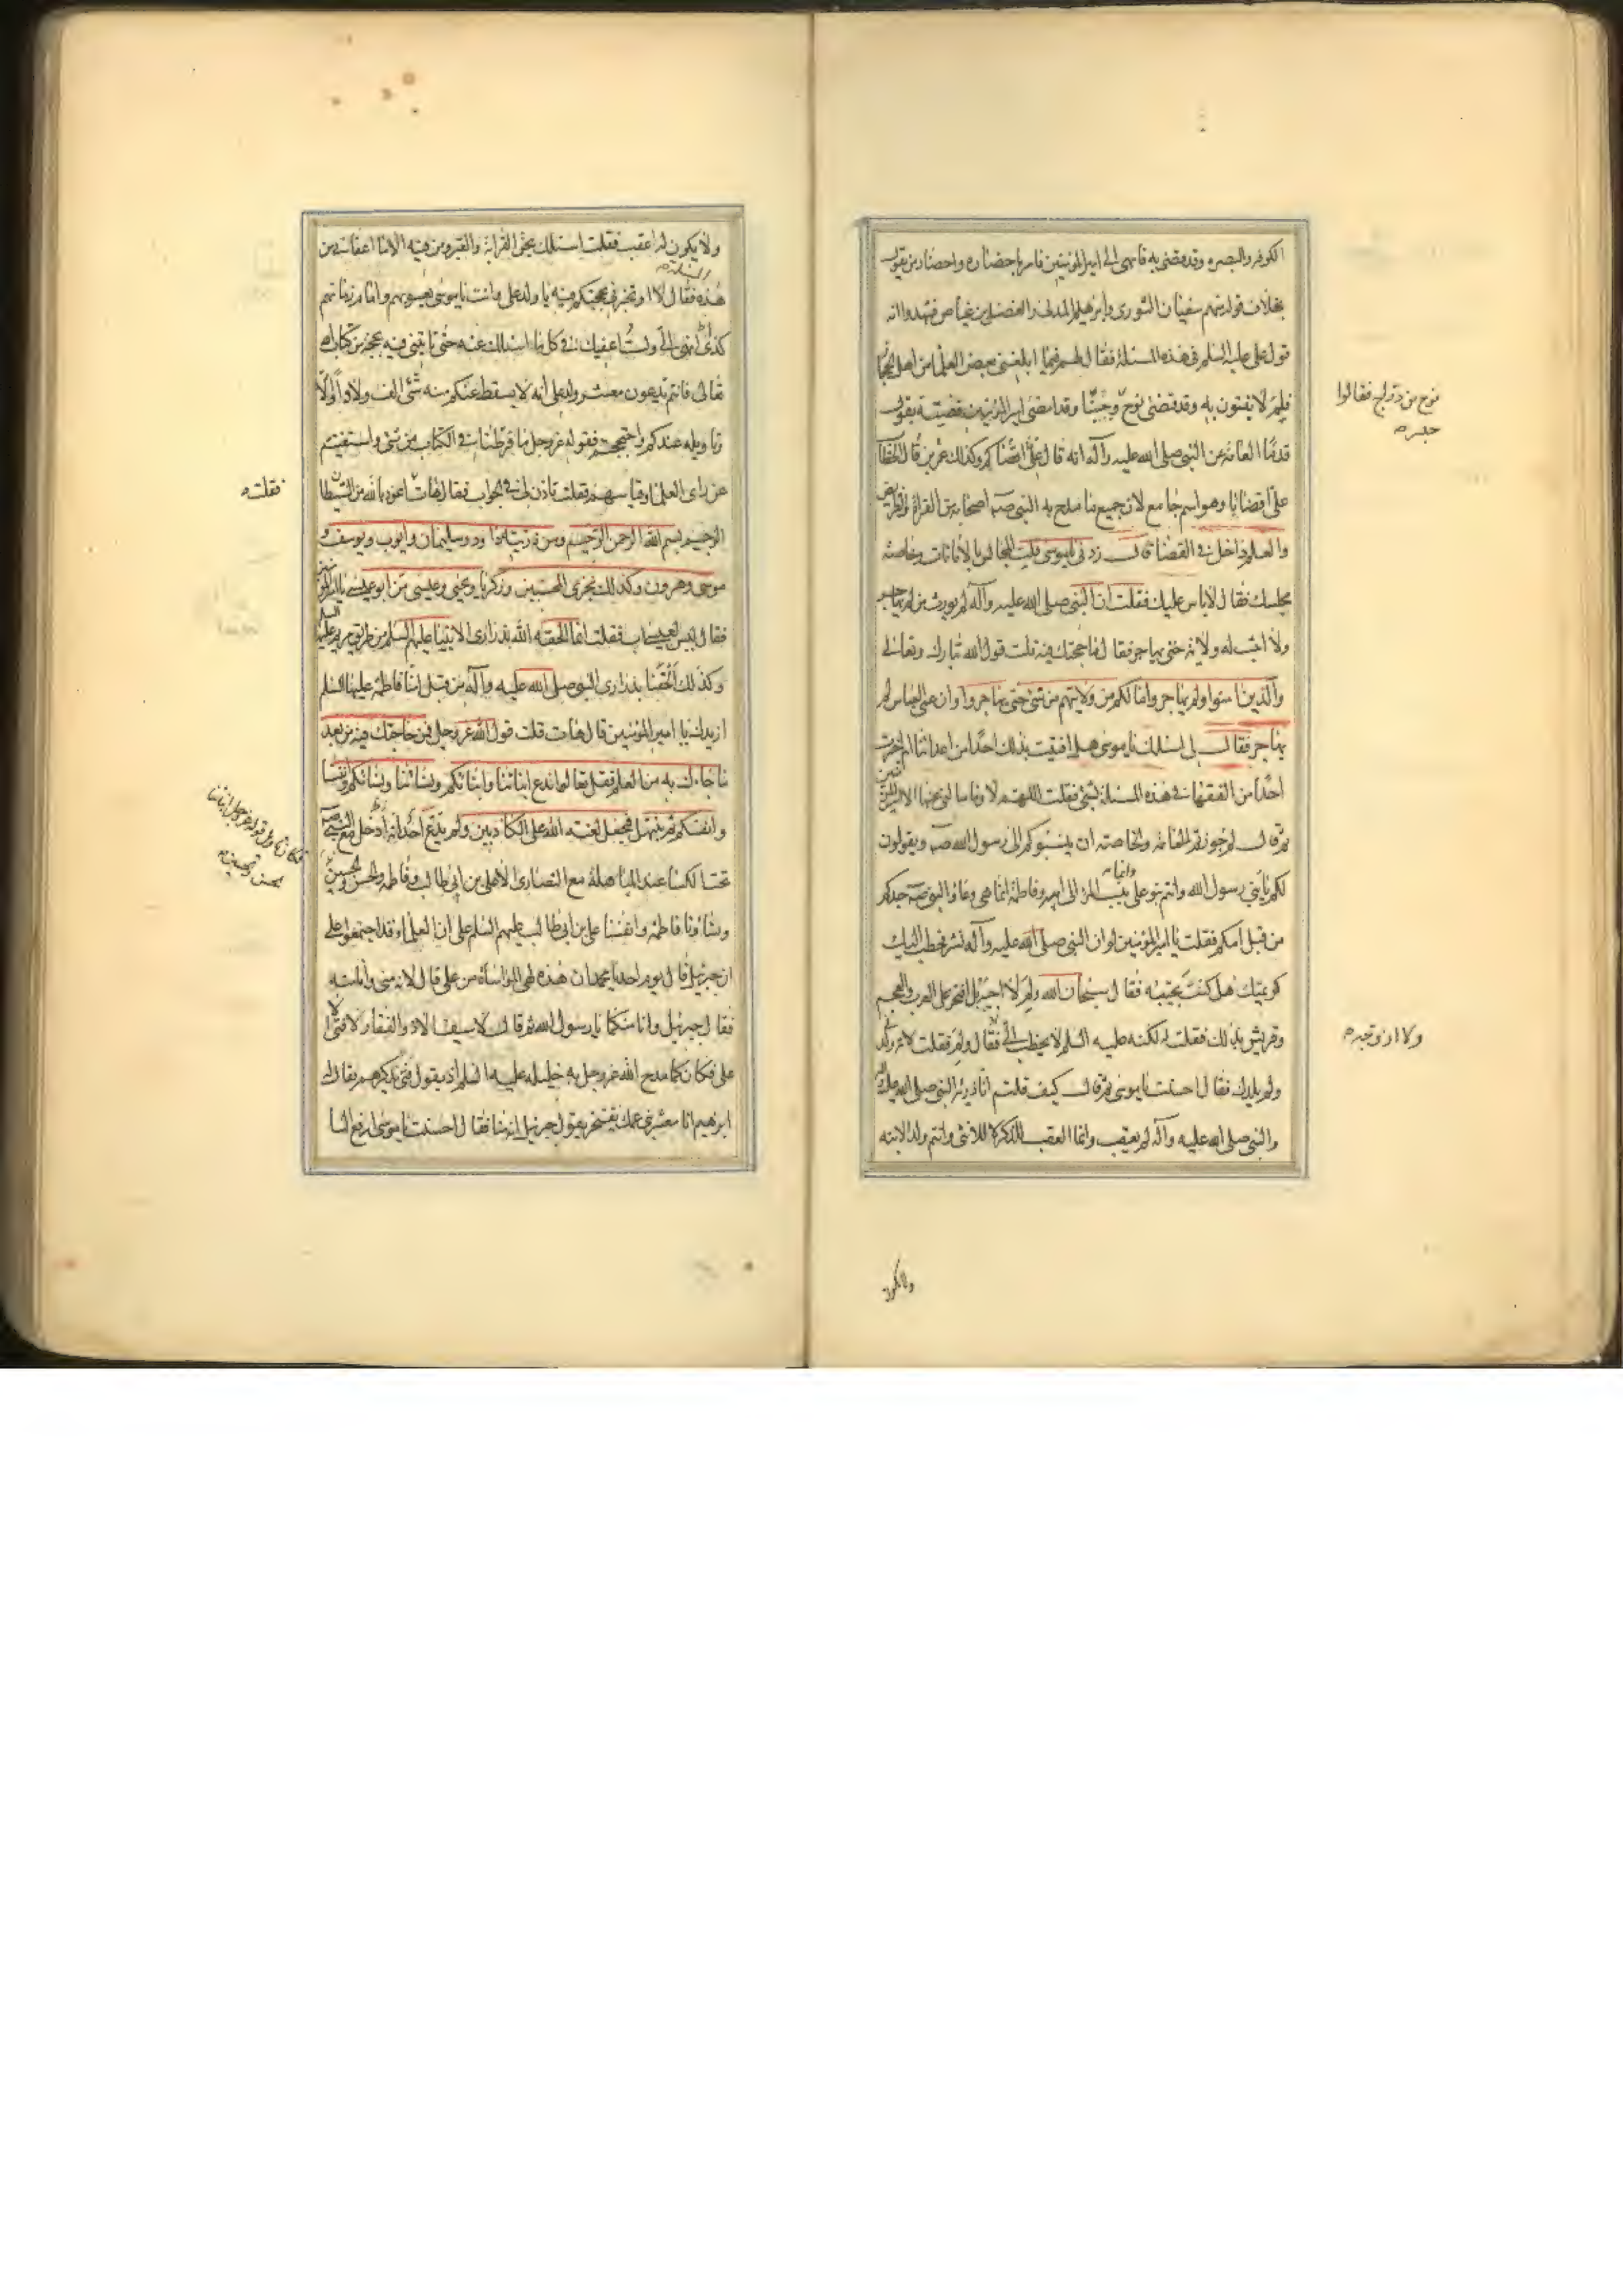 الكوفة والبصرة وقد قضى به فانهى الى امير المؤمنين فامر باحضاره واحضار من يقول
بخلاف قوله منهم سفيان الثورى وابرهيم المدنى والفضيل بن عياض فشهدوا انه
قول على عليه السلم فى هذه المسئلة فقال لهم فيما ابلغنى بعض العلما من اهل الحجاز
فلم لا يفتون به وقد قضى نوح وجبنا وقد امضى امير المؤمنين قضيته بقول
قدما العامة عن النبى صلى الله عليه وآله انه قال على اقضاكم وكذلك عمر بن الخطاب قال
على اقضانا وهو اسم جامع لان جميع ما مدح به النبى صه اصحابه من القراة والفرايض
والعلم داخل فى القضا قال زدنى يا موسى قلت المجالس بالامانات وخاصة
مجلسك فقال لاباس عليك فقلت ان النبى صلى الله عليه وآله لم يورث من لم يهاجر
ولا اثبت له ولاية حتى يهاجر فقال ما حجتك فيه قلت قول الله تبارك وتعالى
والذين امنوا ولم يهاجروا ما لكم من ولايتهم من شئ حتى يهاجروا وان عمى العباس لم
يهاجر فقال لى اسئلك يا موسى هل افتيت بذلك احدا من اعدائنا ام اخبرت
احدا من الفقهاء فى هذه المسئلة بشئ فقلت اللهم لا وما سالنى عنها الا امير المؤمنين
ثم قال لم جوزتم للعامة والخاصة ان ينسبوكم الى رسول الله صه ويقولون
لكم يا بنى رسول الله وانتم بنو على وانما ينسب المرء الى ابيه وفاطمة انما هى وعاء والنبى صه جدكم
من قبل امكم فقلت يا امير المؤمنين لو ان النبى صلى الله عليه وآله نشر فخطب اليك
كريمتك هل كنت تجيبه فقال سبحان الله ولم لا اجيبه بل افتخر على العرب والعجم
وقريش بذلك فقلت له لكنه عليه السلم لا يخطب الى فقال ولم فقلت لانه ولدنى
ولم يلدك فقال احسنت يا موسى ثم قال كيف قلتم انا ذرية النبى صلى الله عليه وآله
والنبى صلى الله عليه وآله لم يعقب وانما العقب للذكر لا للانثى وانتم ولد الابنة
نوح من
فقالوا
جسر
ولا ازوجه
ولايكون
ولا يكون لها عقب فقلت اسئلك بحق القرابة والقبر ومن فيه الا ما اعفانى من
هذه المسئلة فقال لا او تخبرنى بحجتكم فيه يا ولد على وانت يا موسى يعسوبهم وامام زمانهم
كذى انهى الى ولست اعفيك فى كل ما اسئلك عنه حتى تاتينى فيه بحجة من كتاب الله
تعالى فانتم تدعون معشر ولد على انه لا يسقط عنكم منه شئ الف ولا واو الا
وتاويله عندكم واحتججتم بقوله عز وجل ما فرطنا فى الكتاب من شئ واستغنيتم
عن راى العلما وقياسهم فقلت تاذن لى فى الجواب فقال هات اعوذ بالله من الشيطان
الرجيم بسم الله الرحمن الرحيم ومن ذريته داود وسليمان وايوب ويوسف و
موسى وهرون وكذلك نجزى المحسنين وزكريا ويحيى وعيسى من ابو عيسى يا امير المؤمنين
فقال ليس لعيسى اب فقلت انما الحقه الله بذرارى الانبيا عليهم السلم من طريق مريم عليها السلم
وكذلك الحقنا بذرارى النبى صلى الله عليه وآله من قبل امنا فاطمة عليها السلم
ازيدك يا امير المؤمنين قال هات قلت قول الله عز وجل فمن حاجك فيه من بعد
ما جاءك به من العلم فقل تعالوا ندع ابنائنا وابنائكم ونسائنا ونسائكم وانفسنا
وانفسكم ثم نبتهل فنجعل لعنة الله على الكاذبين ولم يدع احد انه ادخل مع النبى صه
تحت الكسا عند المباهلة مع النصارى الا على بن ابى طالب وفاطمة والحسن والحسين
ونساؤنا فاطمة وانفسنا على بن ابى طالب عليهم السلم على ان العلما وقد اجتمعوا على
ان جبرئيل قال يوم احد يا محمد ان هذه لهى المواساة من على قال لانه منى وانا منه
فقال جبرئيل وانا منكما يا رسول الله ثم قال لا سيف الا ذو الفقار ولا فتى الا
على فكان كما مدح الله عز وجل به خليله عليه السلم اذ يقول فتى يذكرهم يقال له
ابرهيم انا معشر بنى عمك نفتخر بقول جبرئيل انه منا فقال احسنت يا موسى ارفع الينا
فقلت
فكان تاويل قوله عز وجل ابنائنا